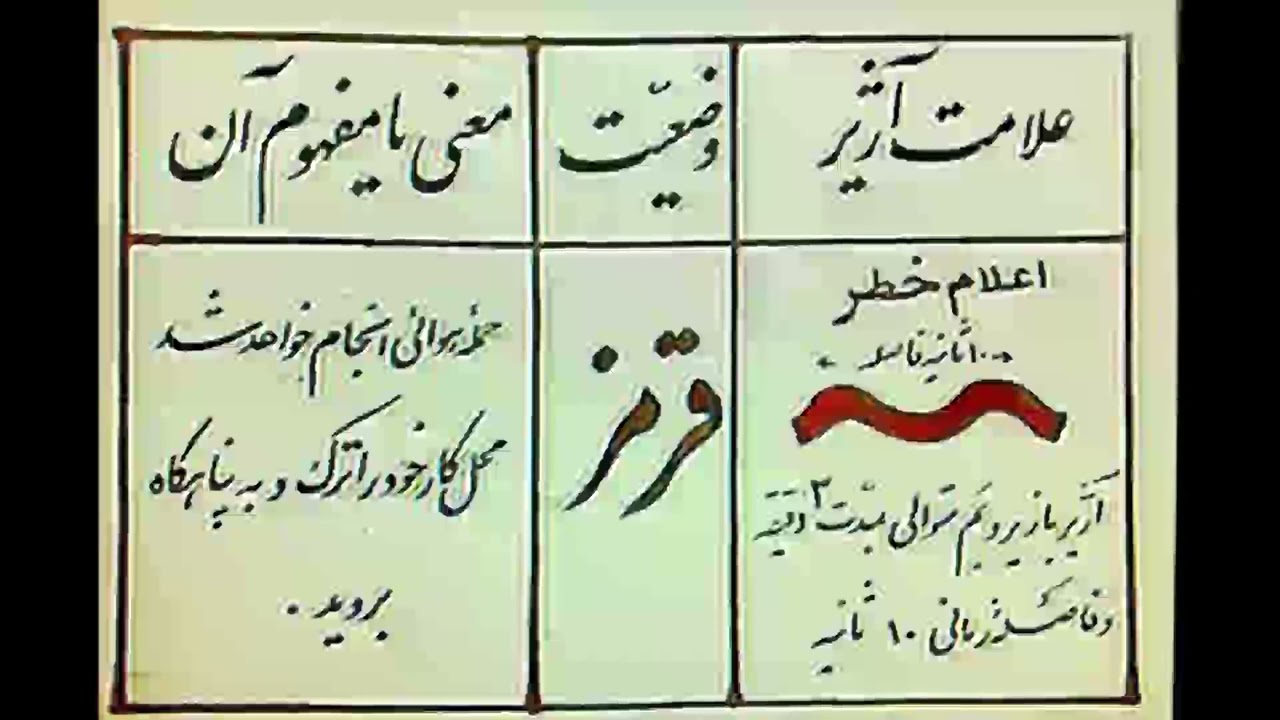 علامت آژیر
وضعیّت
معنی یا مفهوم آن
اعلام خطر
۱۰ ثانیه فاصله
آژیر با زیر و بم متوالی بمدّت ۳ دقیقه
و فاصلهٔ زمانی ۱۰ ثانیه
قرمز
حملهٔ هوائی انجام خواهد شد
محل کار خود را ترک و به پناهگاه
بروید .